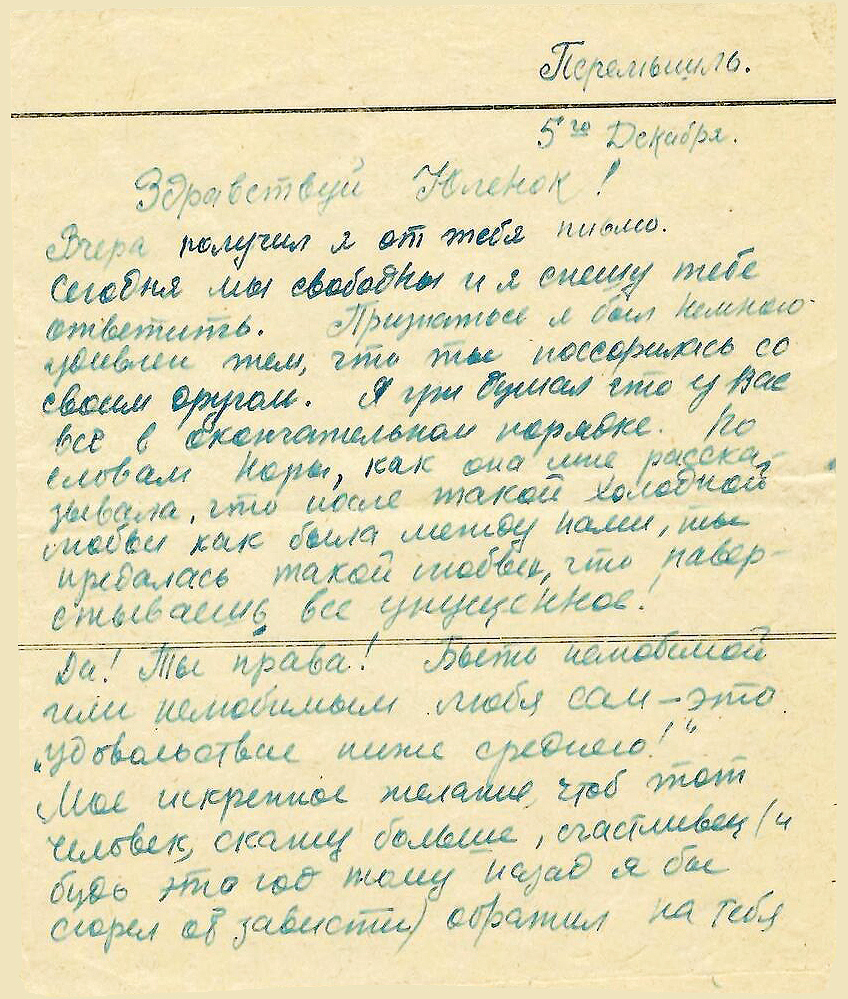 Перемышль.
5го Декабря.
Здравствуй Юленок!
Вчера получил я от тебя письмо.
Сегодня мы свободны и я спешу тебе
ответить. Признаться я был немного
удивлен тем, что ты поссорилась со
своим другом. Я думал что у Вас
всё в окончательном порядке. По
словам Норы, как она мне расска-
зывала, что после такой холодной
любви как была между нами, ты
предалась такой любви, что навер-
стываешь все упущенное!
Да! Ты права! Быть нелюбимой
или нелюбимым любя сам – это
„удовольствие ниже среднего!“
Мое искренное желание, чтоб этот
человек, скажу больше, счастливец (и
будь это год тому назад я бы
сгорел от зависти) обратил на тебя